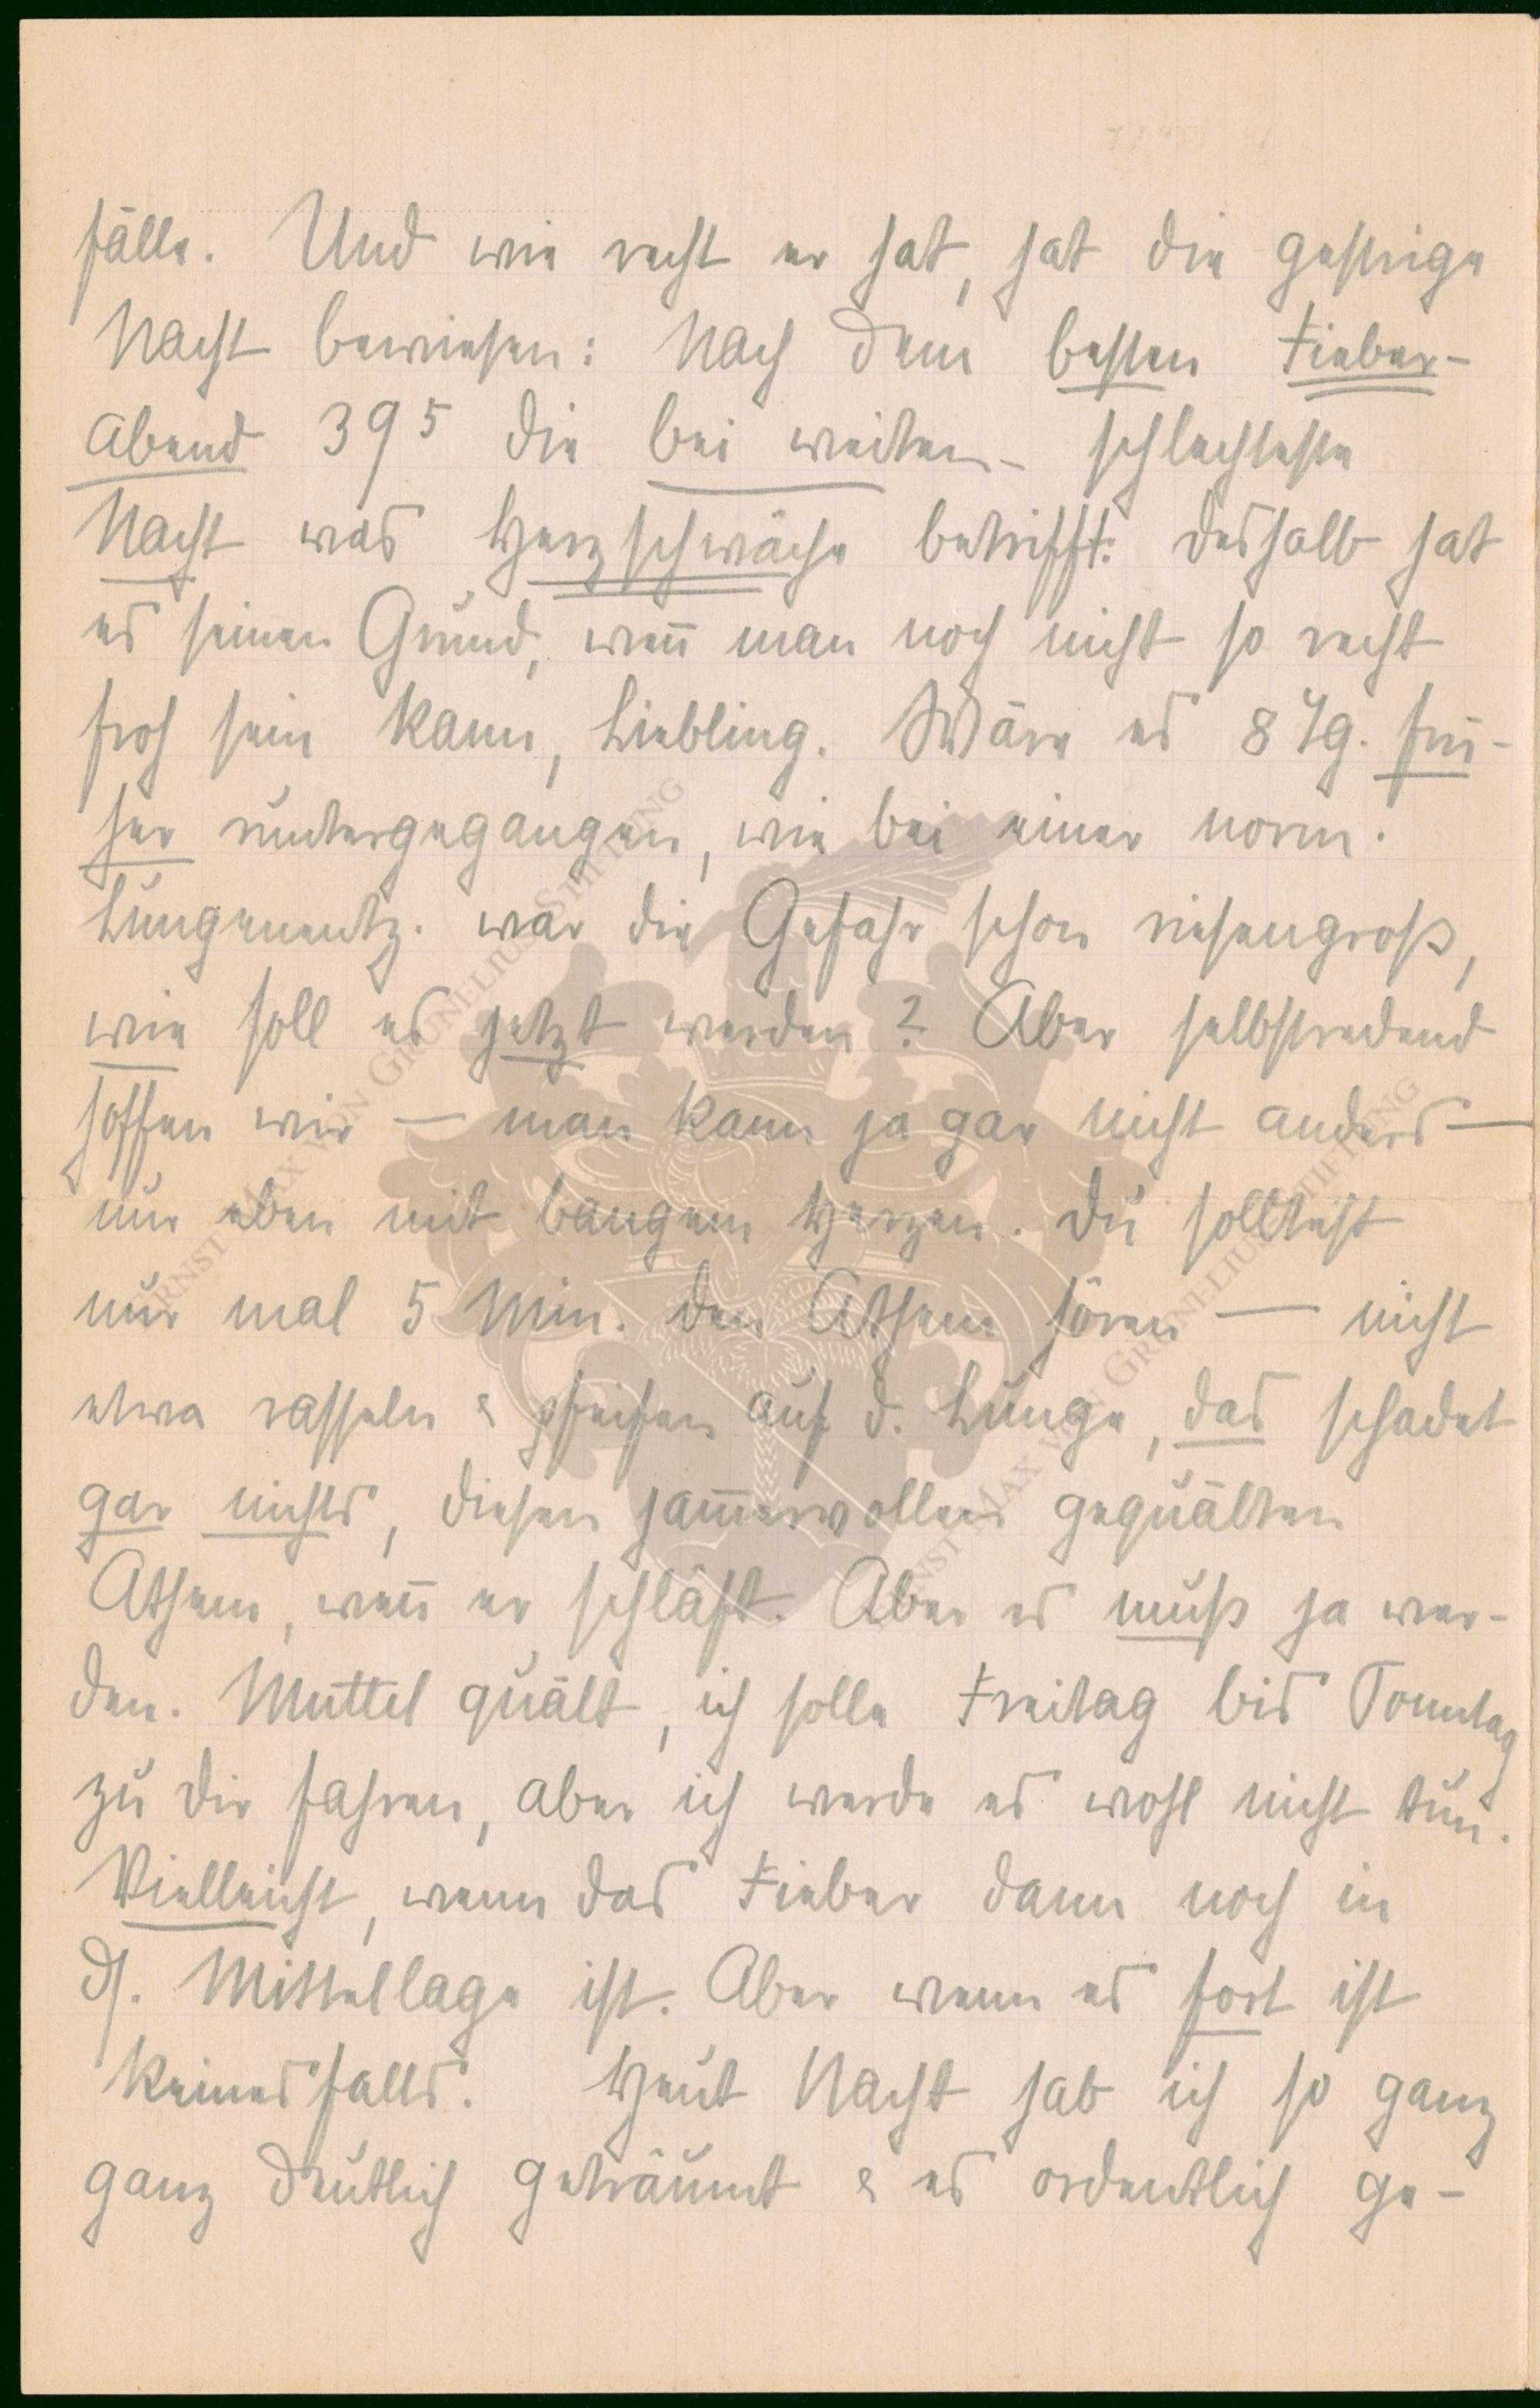 fälle. Und wie recht er hat, hat die gestrige
Nacht bewiesen: Nach dem besten Fieber-
abend 39⁵ die bei weitem schlechteste
Nacht was Herzschwäche betrifft. Deshalb hat
es seinen Grund, weñ man noch nicht so recht
froh sein kann, Liebling. Wäre es 8 Tg. frü-
her runtergegangen, wie bei einer norm.
Lungenentz. war die Gefahr schon riesengroß,
wie soll es jetzt werden? Aber selbstredend
hoffen wir — man kann ja gar nicht anders —
nur eben mit bangem Herzen. Du solltest
nur mal 5 Min. den Athem hören — nicht
etwa rasseln & pfeifen auf d. Lunge, das schadet
gar nichts, diesen jam̃ervollen gequälten
Athem, weñ er schläft. Aber es muß ja wer-
den. Muttel quält, ich solle Freitag bis Sonntag
zu dir fahren, aber ich werde es wohl nicht tun.
Vielleicht, wenn das Fieber dann noch in
ds. Mittellage ist. Aber wenn es fort ist
keinesfalls. Heut Nacht hab ich so ganz
ganz deutlich geträumt & es ordentlich ge-
ERNST MAX VON GRUNELIUS STIFTUNG
ERNST MAX VON GRUNELIUS STIFTUNG